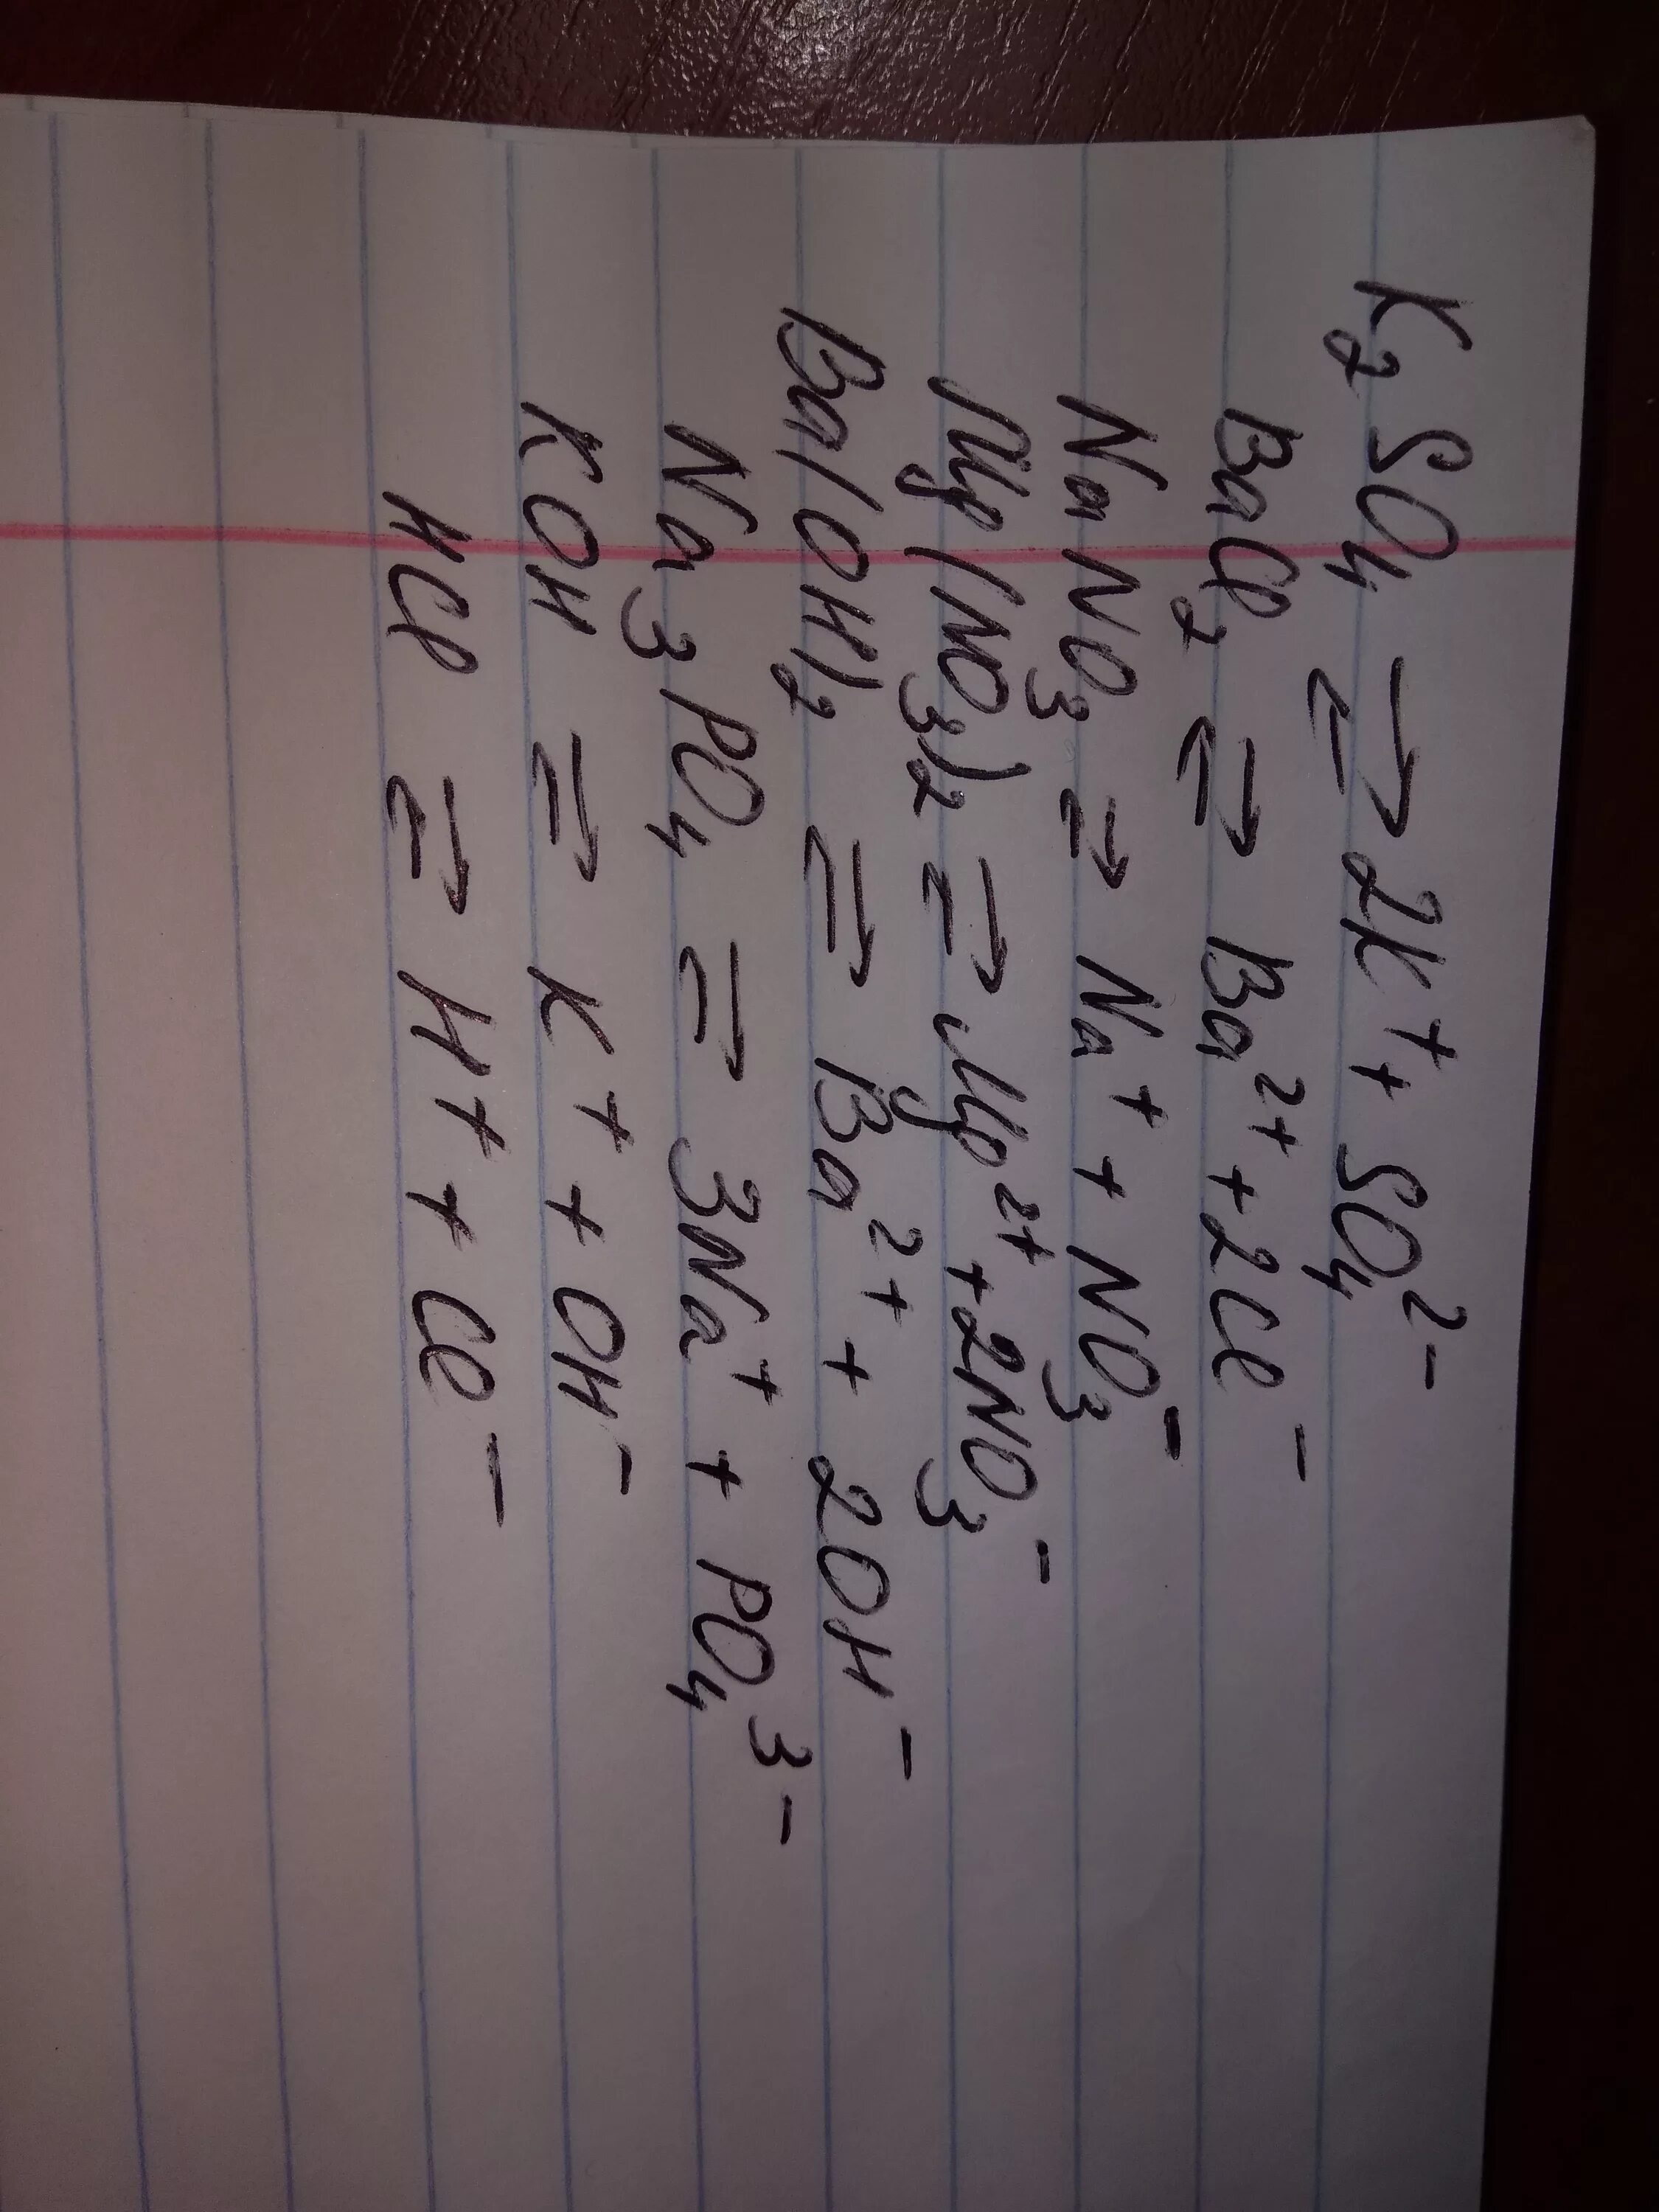 K₂SO₄ ⇄ 2K⁺ + SO₄²⁻
BaCl₂ ⇄ Ba²⁺ + 2Cl⁻
NaNO₃ ⇄ Na⁺ + NO₃⁻
Mg(NO₃)₂ ⇄ Mg²⁺ + 2NO₃⁻
Ba(OH)₂ ⇄ Ba²⁺ + 2OH⁻
Na₃PO₄ ⇄ 3Na⁺ + PO₄³⁻
KOH ⇄ K⁺ + OH⁻
HCl ⇄ H⁺ + Cl⁻